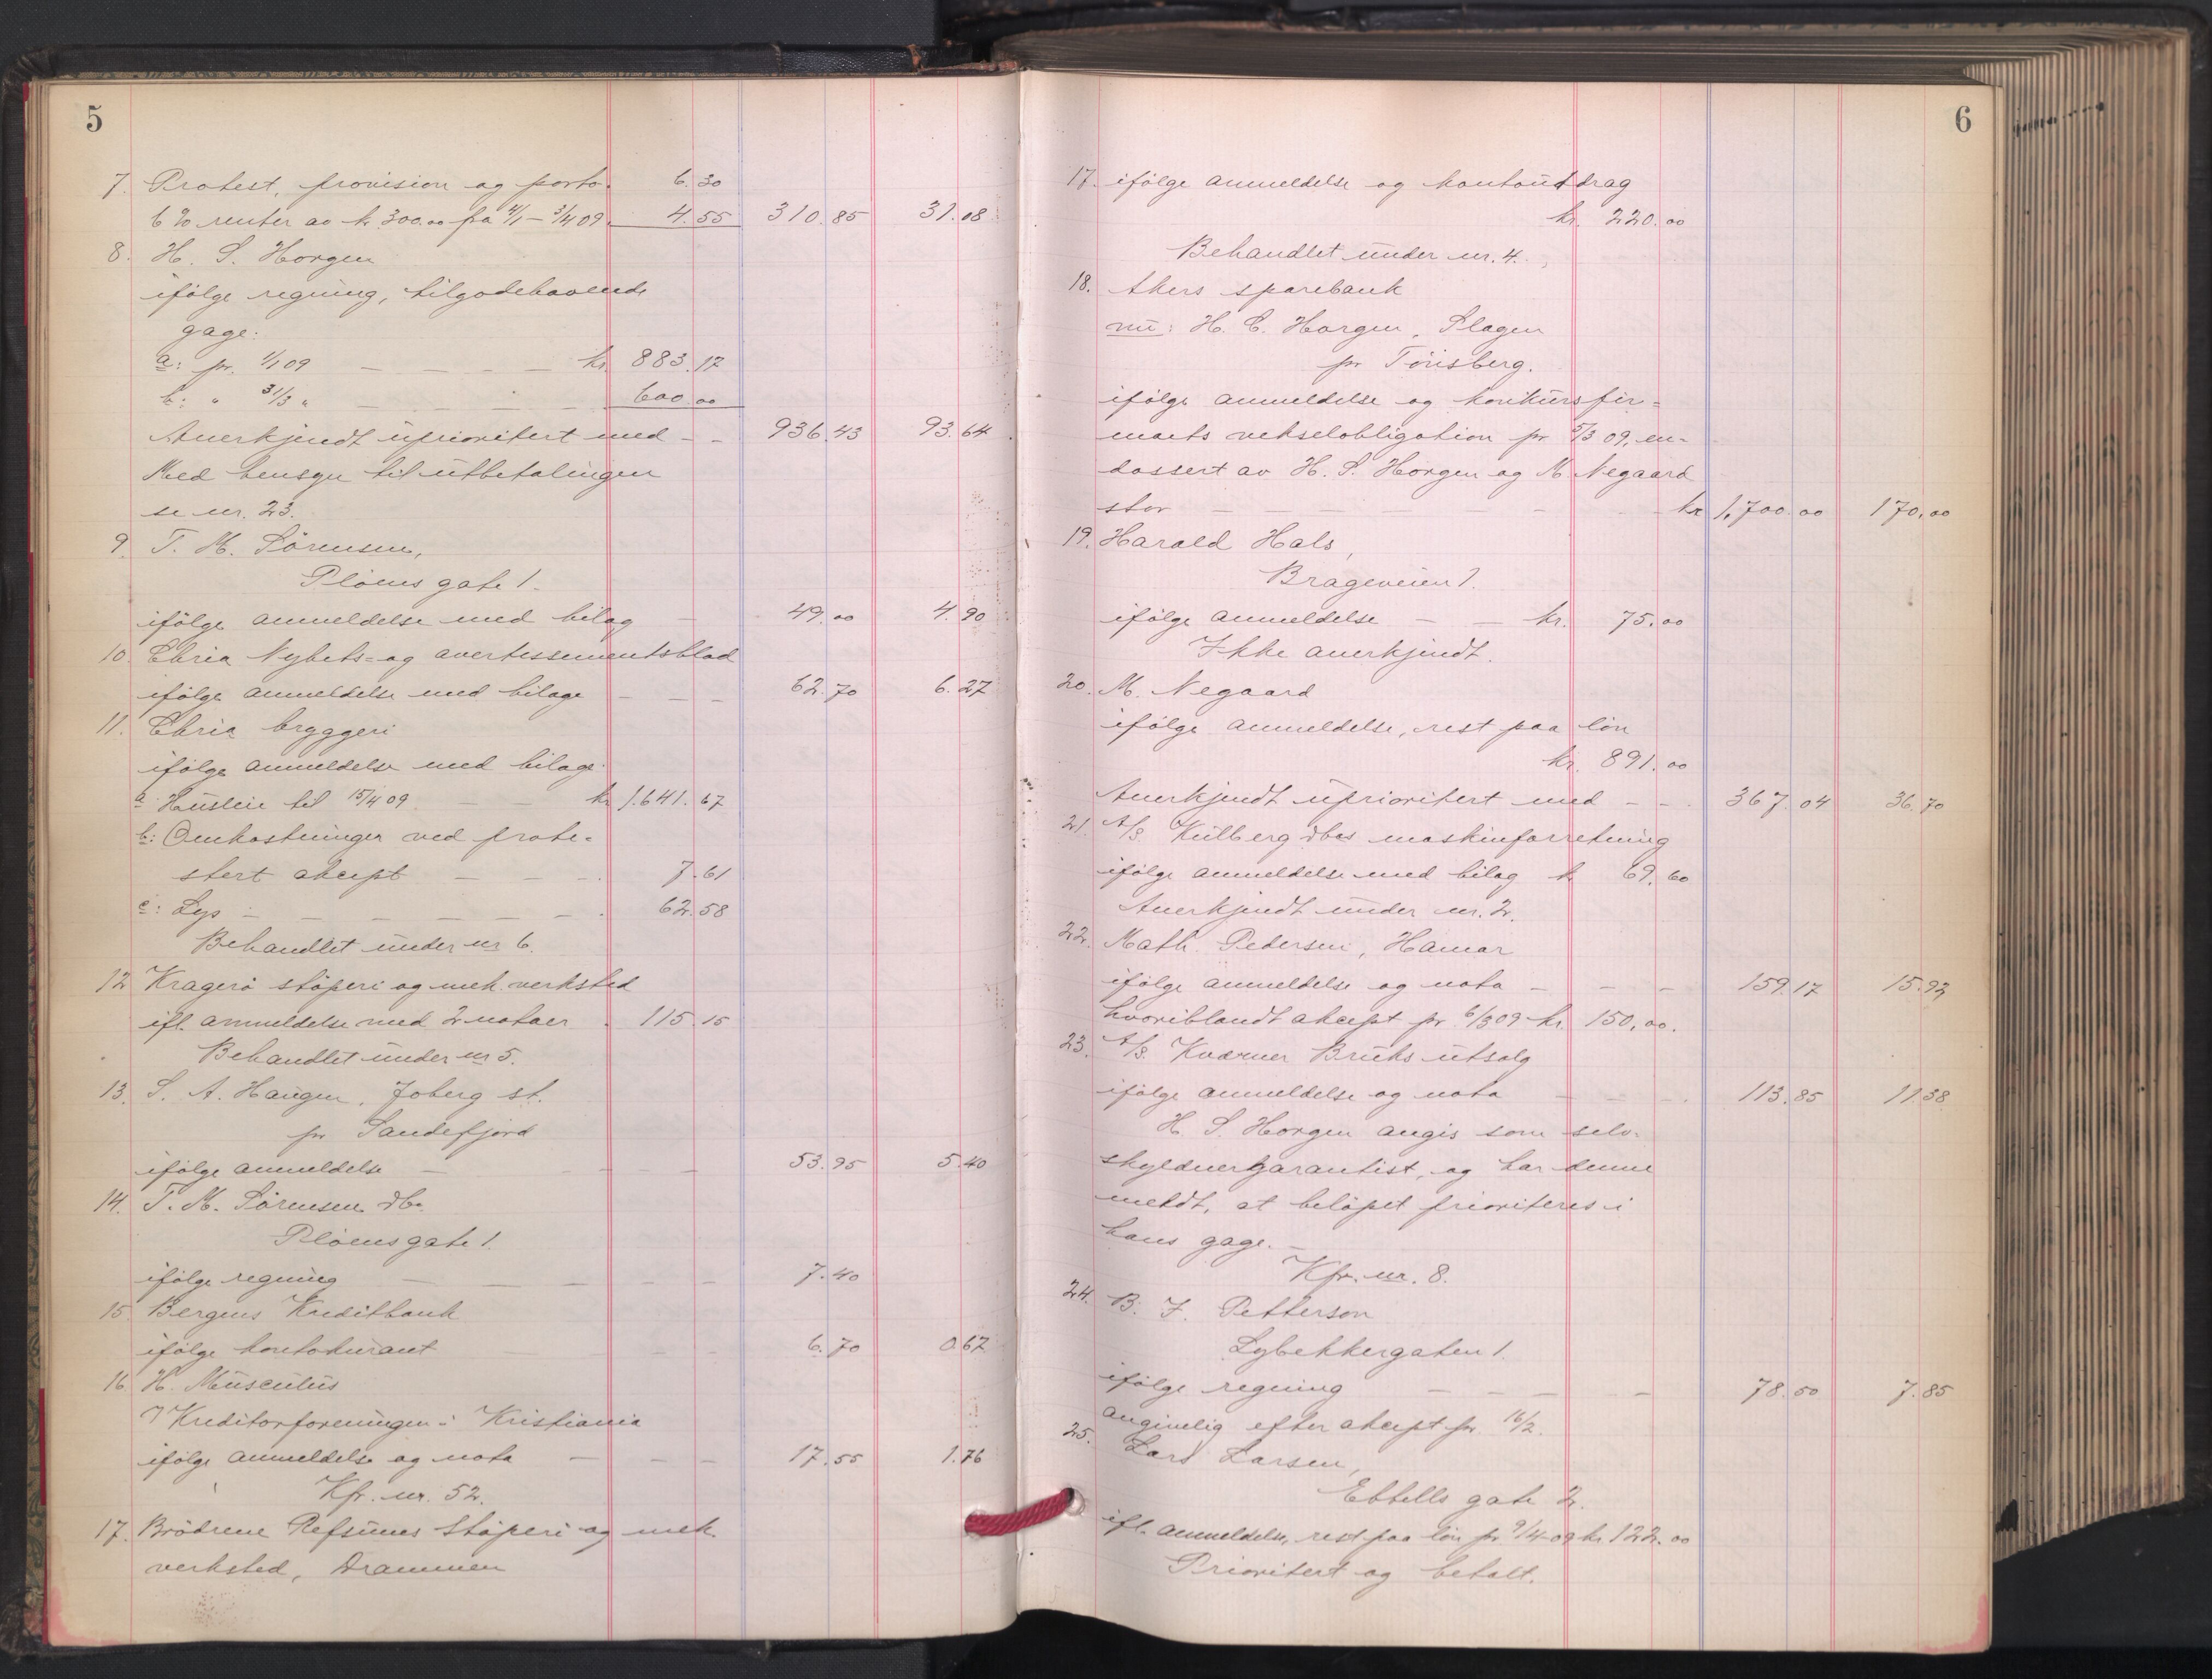 5
7. Protest, provision og porto. 6.30
6 % renter av kr 300.00 fra 4/1 – 3/4 09. 4.55 310.85 31.08
8. H. S. Horgen
ifölge regning, tilgodehavende
gage:
a: pr. 1/1 09 — — — — kr. 883.17
b: " 31/3 " — — — — 600.00
Anerkjendt uprioritert med – – 936.43 93.64
Med hensyn til utbetalingen
se nr. 23.
9. T. M. Sörensen,
Plöens gate 1.
ifölge anmeldelse med bilag — 49.00 4.90
10. Chria Nyhets- og avertissementsblad
ifölge anmeldelse med bilage — — — 62.70 6.27
11. Chria bryggeri
ifölge anmeldelse med bilage
a: Husleie til 15/4 09 — — kr 1.641.67
b: Omkostninger ved prote-
stert aksept — — — 7.61
c: Lys — — — — — — 62.58
Behandlet under nr 6.
12 Kragerö stöperi og mek. verksted
ifl. anmeldelse med 2 notaer . 115.15
Behandlet under nr 5.
13. S. A. Haugen, Joberg st.
pr Sandefjord
ifölge anmeldelse — — — — 53.95 5.40
14. T. M. Sörensen do.
Plöens gate 1.
ifölge regning — — — — — 7.40
15. Bergens Kreditbank
ifölge kontokurant — — — — 6.70 0.67
16 H. Musculus
Kreditorforeningen i Kristiania
ifölge anmeldelse og nota — — — 17.55 1.76
Kfr. nr. 52.
17. Brödrene Refsunes Stöperi og mek.
verksted, Drammen
6
17. ifölge anmeldelse og kontoutdrag
kr. 220.00
Behandlet under nr. 4.
18. Akers sparebank
nu: H. C. Horgen, Slagen
pr Tönsberg.
ifölge anmeldelse og konkursfir=
maets vekselobligation pr 5/3 09, en-
dossert av H. S. Horgen og M. Negaard
stor — — — — — — kr 1,700.00 170.00
19. Harald Hals,
Brageveien 1.
ifölge anmeldelse — — kr. 75.00
Ikke anerkjendt.
20. M. Negaard
ifölge anmeldelse, rest paa lön
kr. 891.00
Anerkjendt uprioritert med – – . 367.04 36.70
21. A/S. Kullberg & Cos maskinforretning
ifölge anmeldelse med bilag kr 69.60
Anerkjendt under nr. 2.
22. Math. Pedersen, Hamar
ifölge anmeldelse og nota — — — 159.17 15.92
hvoriblandt aksept pr 6/3 09 kr. 150.00.
23. A/S. Kværner Bruks utsalg
ifölge anmeldelse og nota — — — 113.85 11.38
H. S. Horgen angis som selv-
skyldnergarantist, og har denne
meldt, at belöpet prioriteres i
hans gage. —
Kfr. nr. 8.
24. B. F. Petterson
Lybekkergaten 1.
ifölge regning — — — — 78.50 7.85
angivelig efter aksept pr 16/2.
25. Lars Larsen,
Ebbells gate 2.
ifl. anmeldelse, rest paa lön pr 9/4-09 kr 122.00
Prioritert og betalt.